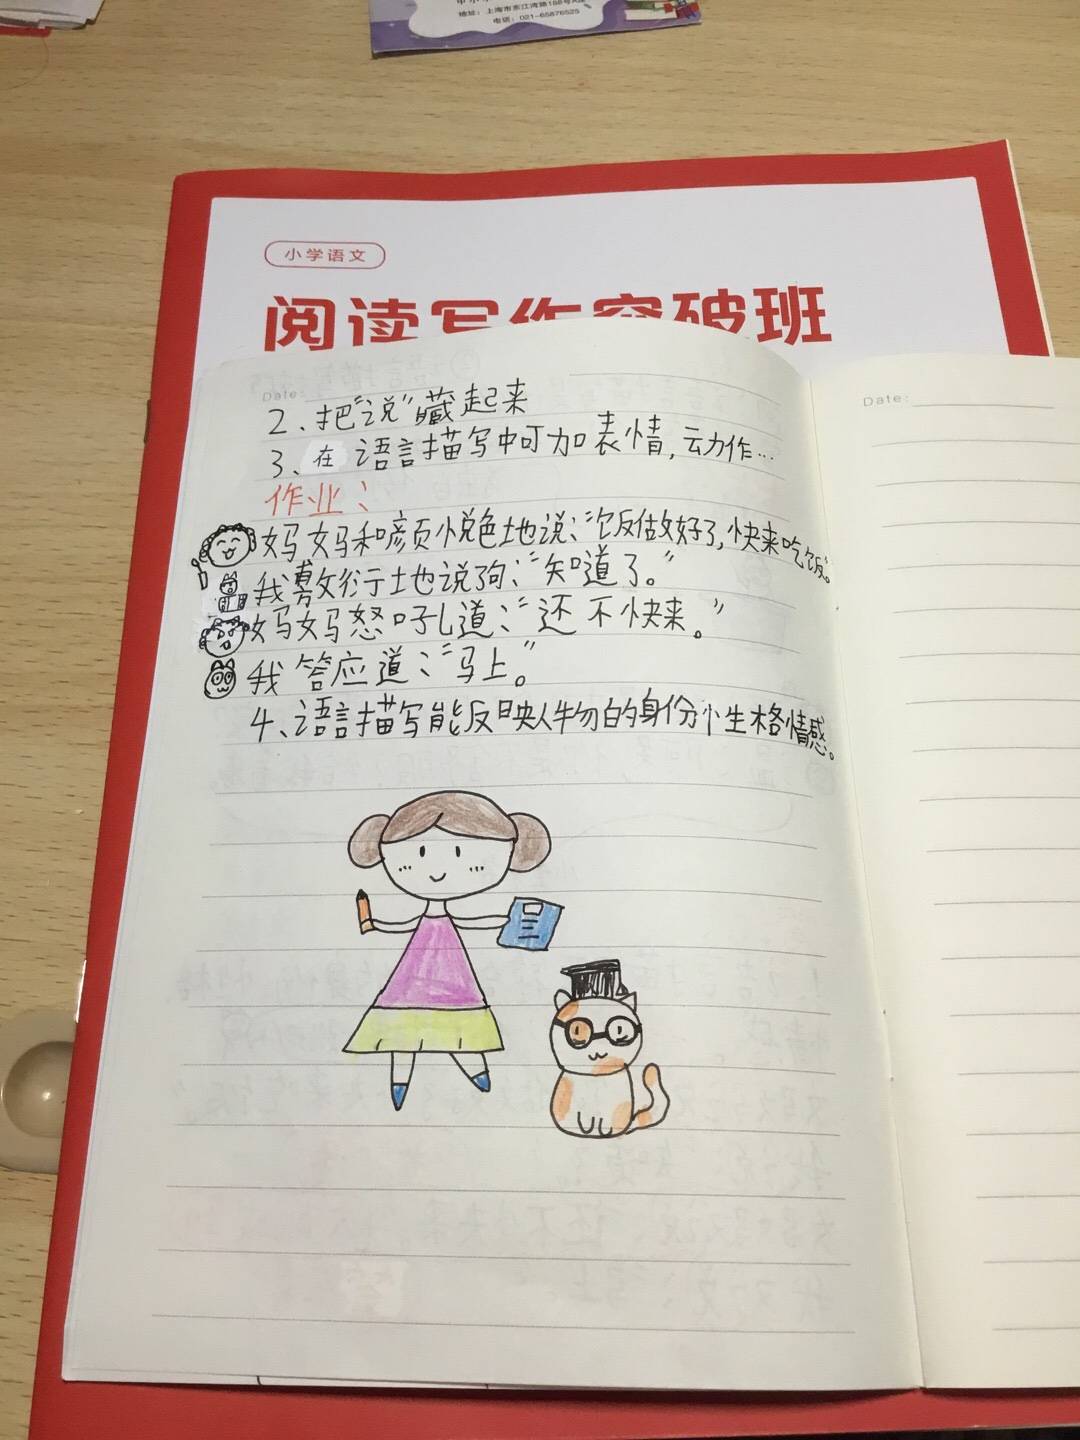 地址:上海市东江湾路188号A座
电话:021-65876525
小学语文
阅读写作突破班
Date:
2、把“说”藏起来
3、在语言描写中可加表情,动作…
作业:
妈妈和颜悦色地说:“饭做好了,快来吃饭。”
我敷衍地说:“知道了。”
妈妈怒吼道:“还不快来。”
我答应道:“马上。”
4、语言描写能反映人物的身份个性格情感。
Date: